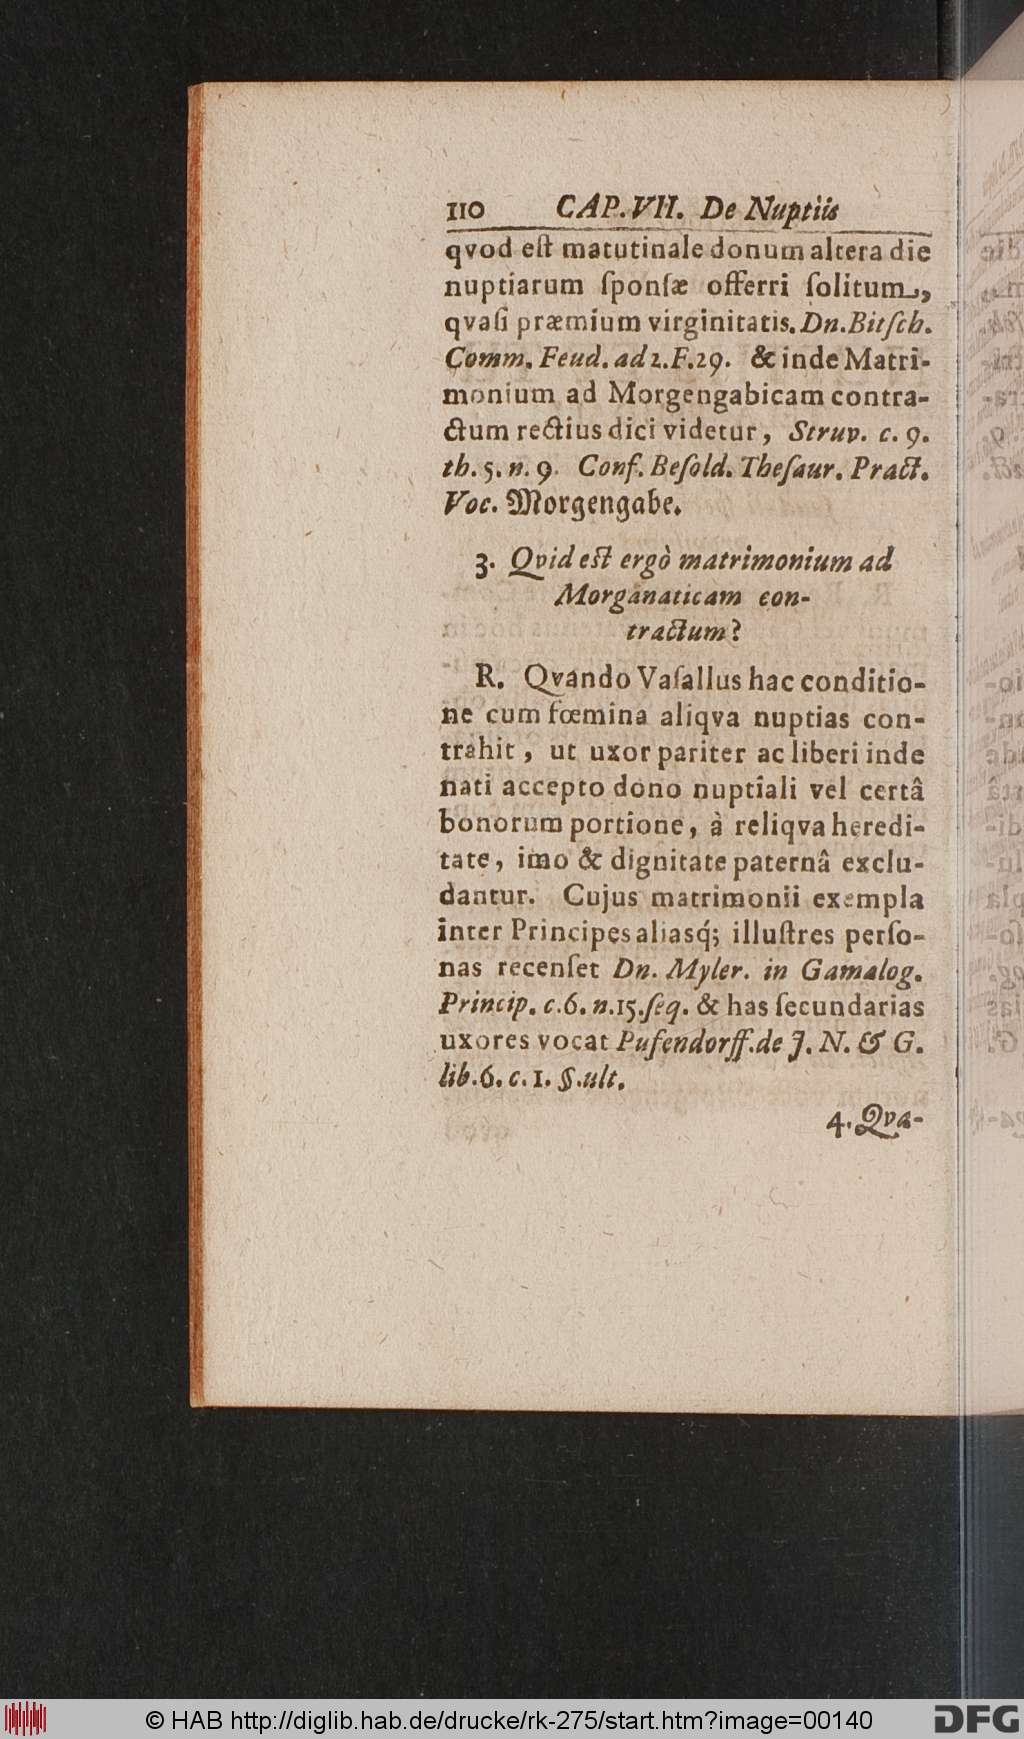 110 CAP. VII. De Nuptiis
qvod eſt matutinale donum altera die
nuptiarum ſponſæ offerri ſolitum,
qvaſi præmium virginitatis. Dn. Bitſch.
Comm. Feud. ad 2. F. 29. & inde Matri-
monium ad Morgengabicam contra-
ctum rectius dici videtur, Struv. c. 9.
th. 5. n. 9. Conf. Beſold. Theſaur. Pract.
Voc. Morgengabe.
3. Qvid eſt ergò matrimonium ad
Morganaticam con-
tractum?
R. Qvando Vaſallus hac conditio-
ne cum fœmina aliqva nuptias con-
trahit, ut uxor pariter ac liberi inde
nati accepto dono nuptiali vel certâ
bonorum portione, à reliqva heredi-
tate, imo & dignitate paternâ exclu-
dantur. Cujus matrimonii exempla
inter Principes aliasq́; illuſtres perſo-
nas recenſet Dn. Myler. in Gamalog.
Princip. c. 6. n. 15. ſeq. & has ſecundarias
uxores vocat Pufendorff. de J. N. & G.
lib. 6. c. 1. §. ult.
4. Qva-
© HAB http://diglib.hab.de/drucke/rk-275/start.htm?image=00140
DFG